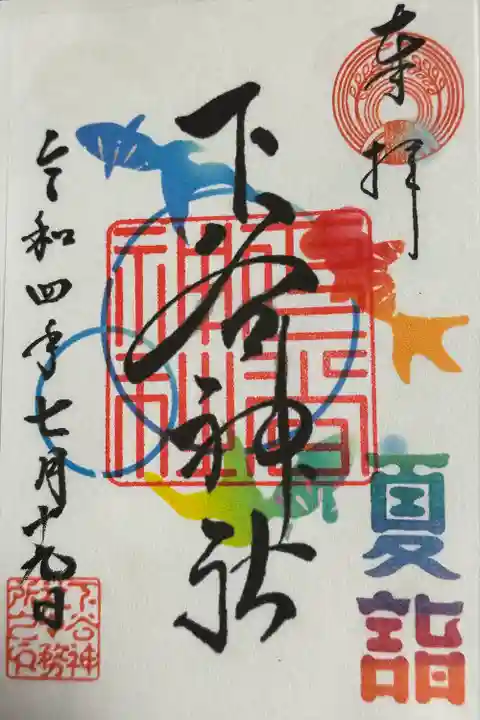 奉拝
下谷神社
夏詣
令和四年七月十九日
下谷神社